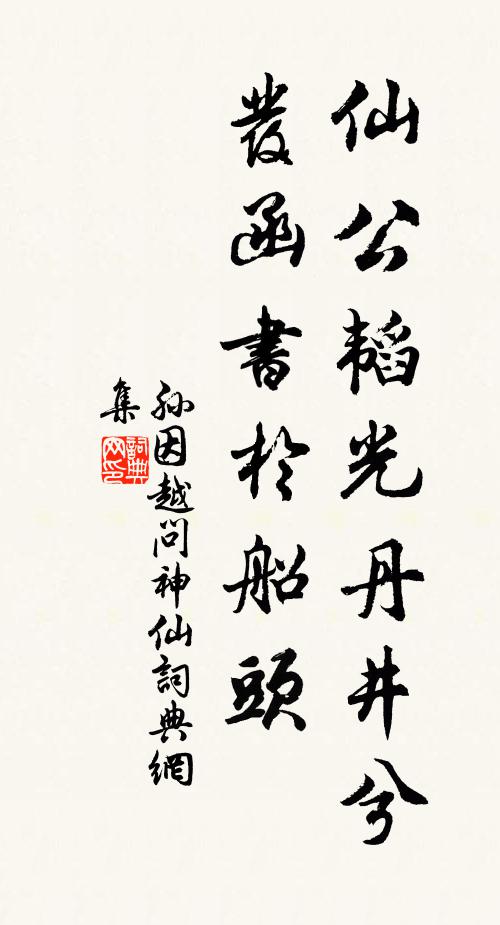 仙公韜光丹井兮
發函書於船頭
孫因越問神仙詞典網
集
詞典
网印